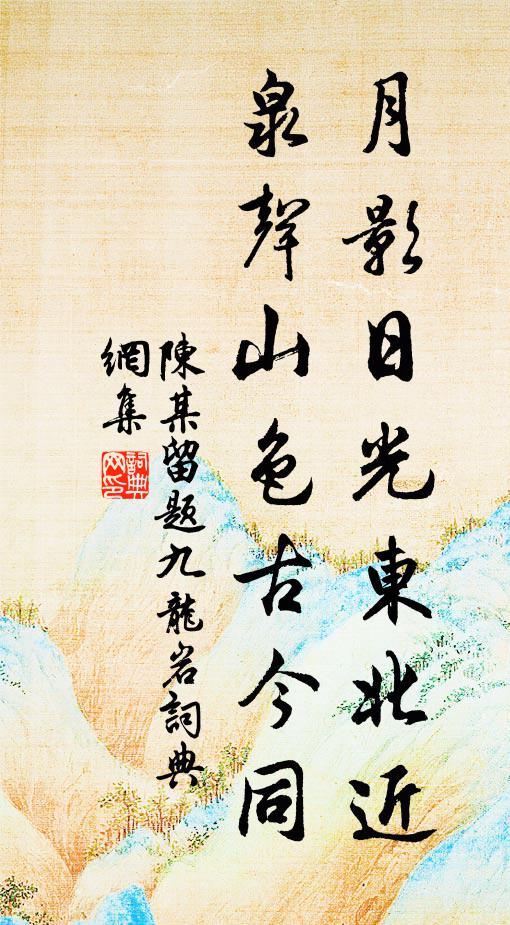 月影日光東北近
泉聲山色古今同
陳某留題九龍岩詞典
網集
詞典
网印